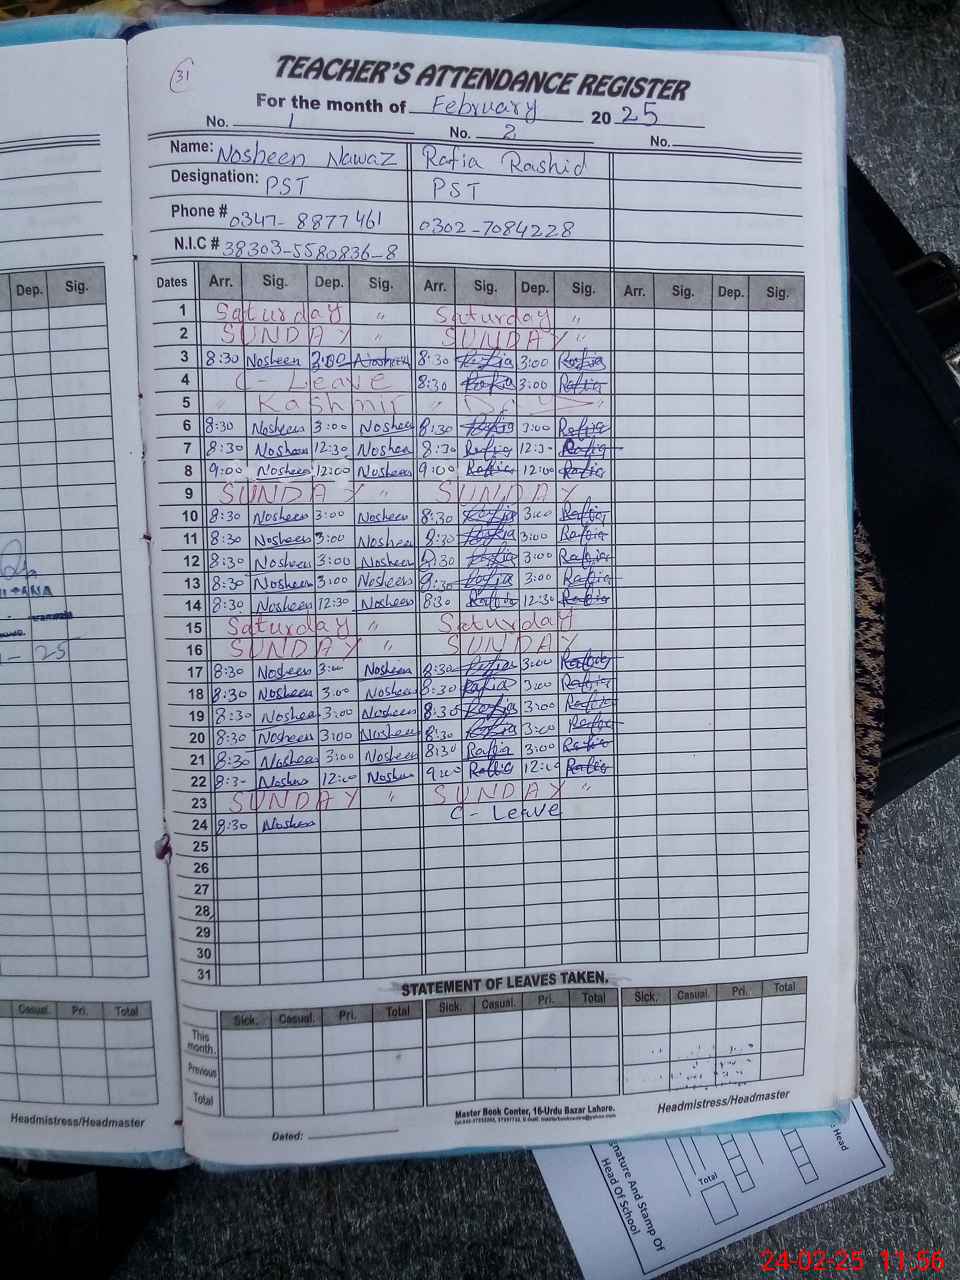 31
TEACHER'S ATTENDANCE REGISTER
For the month of February 2025
No. 1 No. 2 No.
Name: Nosheen Nawaz Rafia Rashid
Designation: PST PST
Phone # 0347-8877461 0302-7084228
N.I.C # 38303-5580836-8
Dep. Sig. Dates Arr. Sig. Dep. Sig. Arr. Sig. Dep. Sig. Arr. Sig. Dep. Sig.
1 Saturday " Saturday "
2 SUNDAY " SUNDAY "
3 8:30 Nosheen 3:00 Nosheen 8:30 Rafia 3:00 Rafia
4 C - Leave 8:30 Rafia 3:00 Rafia
5 " Kashmir " Day "
6 8:30 Nosheen 3:00 Nosheen 8:30 Rafia 3:00 Rafia
7 8:30 Nosheen 12:30 Nosheen 8:30 Rafia 12:30 Rafia
8 9:00 Nosheen 12:00 Nosheen 9:00 Rafia 12:00 Rafia
9 SUNDAY " SUNDAY
10 8:30 Nosheen 3:00 Nosheen 8:30 Rafia 3:00 Rafia
11 8:30 Nosheen 3:00 Nosheen 8:30 Rafia 3:00 Rafia
12 8:30 Nosheen 3:00 Nosheen 8:30 Rafia 3:00 Rafia
13 8:30 Nosheen 3:00 Nosheen Rafia 3:00 Rafia
14 8:30 Nosheen 12:30 Nosheen 8:30 Rafia 12:30 Rafia
15 Saturday " Saturday
16 SUNDAY " SUNDAY
17 8:30 Nosheen 3:00 Nosheen 8:30 Rafia 3:00 Rafia
18 8:30 Nosheen 3:00 Nosheen 8:30 Rafia 3:00 Rafia
19 8:30 Nosheen 3:00 Nosheen 8:30 Rafia 3:00 Rafia
20 8:30 Nosheen 3:00 Nosheen 8:30 Rafia 3:00 Rafia
21 8:30 Nosheen 3:00 Nosheen 8:30 Rafia 3:00 Rafia
22 8:30 Nosheen 12:00 Nosheen 9:00 Rafia 12:00 Rafia
23 SUNDAY " SUNDAY "
24 8:30 Nosheen C - Leave
25
26
27
28
29
30
31
STATEMENT OF LEAVES TAKEN.
Casual. Pri. Total Sick. Casual. Pri. Total Sick. Casual. Pri. Total Sick. Casual. Pri. Total
This month.
Previous
Total
Headmistress/Headmaster
Master Book Center, 16-Urdu Bazar Lahore.
Headmistress/Headmaster
Dated:
Signature And Stamp Of
Head Of School
Total
Head
24-02-25 11:56